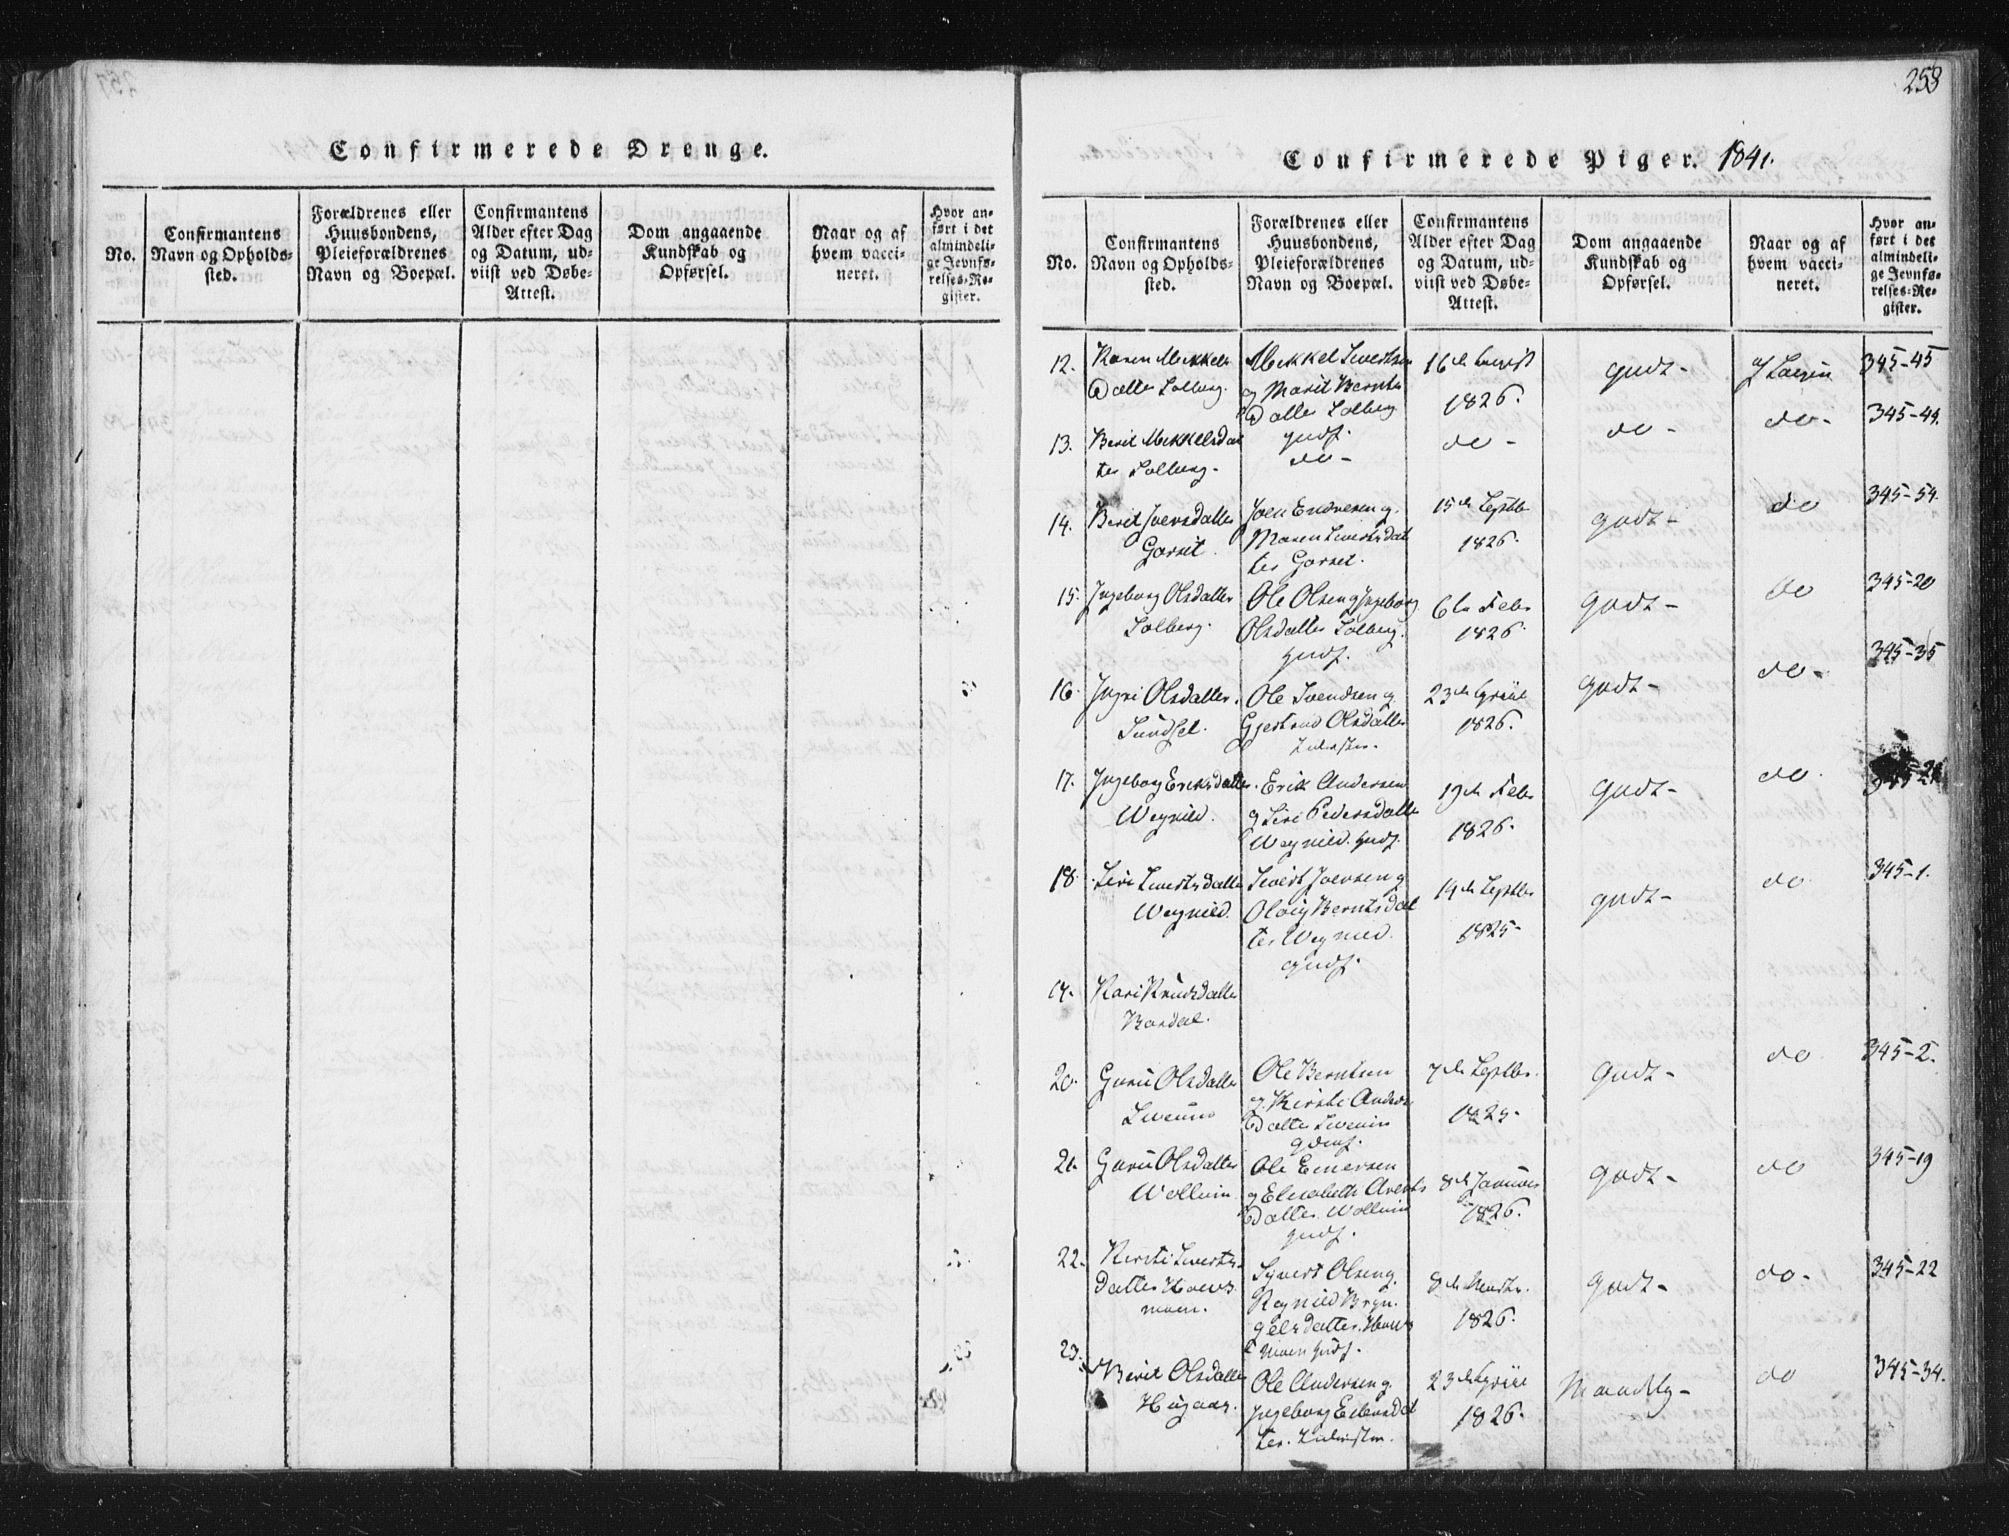 258
Confirmerede Drenge.
No.
Confirmantens
Navn og Opholds-
sted.
Forældrenes eller
Huusbondens,
Pleieforældrenes
Navn og Boepæl.
Confirmantens
Alder efter Dag
og Datum, ud-
viist ved Døbe-
Attest.
Dom angaaende
Kundskab og
Opførsel.
Naar og af
hvem vacci-
neret.
Hvor an-
ført i det
almindeli-
ge Jevnfø-
relses-Re-
gister.
Confirmerede Piger. 1841.
No.
Confirmantens
Navn og Opholds-
sted.
Forældrenes eller
Huusbondens,
Pleieforældrenes
Navn og Boepæl.
Confirmantens
Alder efter Dag
og Datum, ud-
viist ved Døbe-
Attest.
Dom angaaende
Kundskab og
Opførsel.
Naar og af
hvem vacci-
neret.
Hvor an-
ført i det
almindeli-
ge Jevnfø-
relses-Re-
gister.
12.
Karen Mikkels
Datter Solberg.
Mikkel Sivertsen
og Marit Bernts
Datter Solberg
gudf.
16de August
1826.
godt-
345-45
13.
Berit Mikkelsdat
ter Solberg-
do-
do-
do-
do-
345-44.
14.
Berit Joensdatter
Gorset.
Joen Endresen g.
Maren Sivertsdat
ter Gorset.
15de Septbr
1826.
godt-
do
345-54.
15.
Ingeborg Olsdatter
Solberg.
Ole Olsen g Ingeborg
Olsdatter Solberg.
gudf.
6te Febr
1826.
Godt-
do
345-20
16.
Ingri Olsdatter.
Sundset.
Ole Svendsen g
Gjertrud Olsdatter
Inderster.
23de April
1826.
Godt-
do-
345-35
17.
Ingeborg Eriksdatter.
Wognild.
Erik Andersen
g Siri Pedersdatter
Wognild. gudf.
19de Febr
1826.
Godt-
do.
18.
Siri Sivertsdatter
Wognild.
Sivert Joensen g
Olaug Berntsdat
ter Wognild
gudf.
14de Septbr
1825-
godt-
do
345-1.
19.
Kari Knudsdatter
Bardal.
20.
Guru Olsdatter
Ole Berntsen
g. Kirsti Anders
Datter
7de Septbr.
1825-
Godt-
do
345-2.
21.
Guru Olsdatter
Wollum
Ole Einersen
g Elisabeth
Datter Wollum
gudf.
8de Januar
1826.
Godt-
do
345-19
22.
Kirsti Siverts-
datter Hoevs
moen.
Syvert Olsen g.
Ragnild Bryn-
gelsdatter. Hoevs
moen gudf.
1826.
Godt-
do-
345-22
23.
Berit Olsdatter
Haugaar.
Ole Andersen g
Ingeborg
ter.
23de April
1826.
Maadelig-
do
345-34.